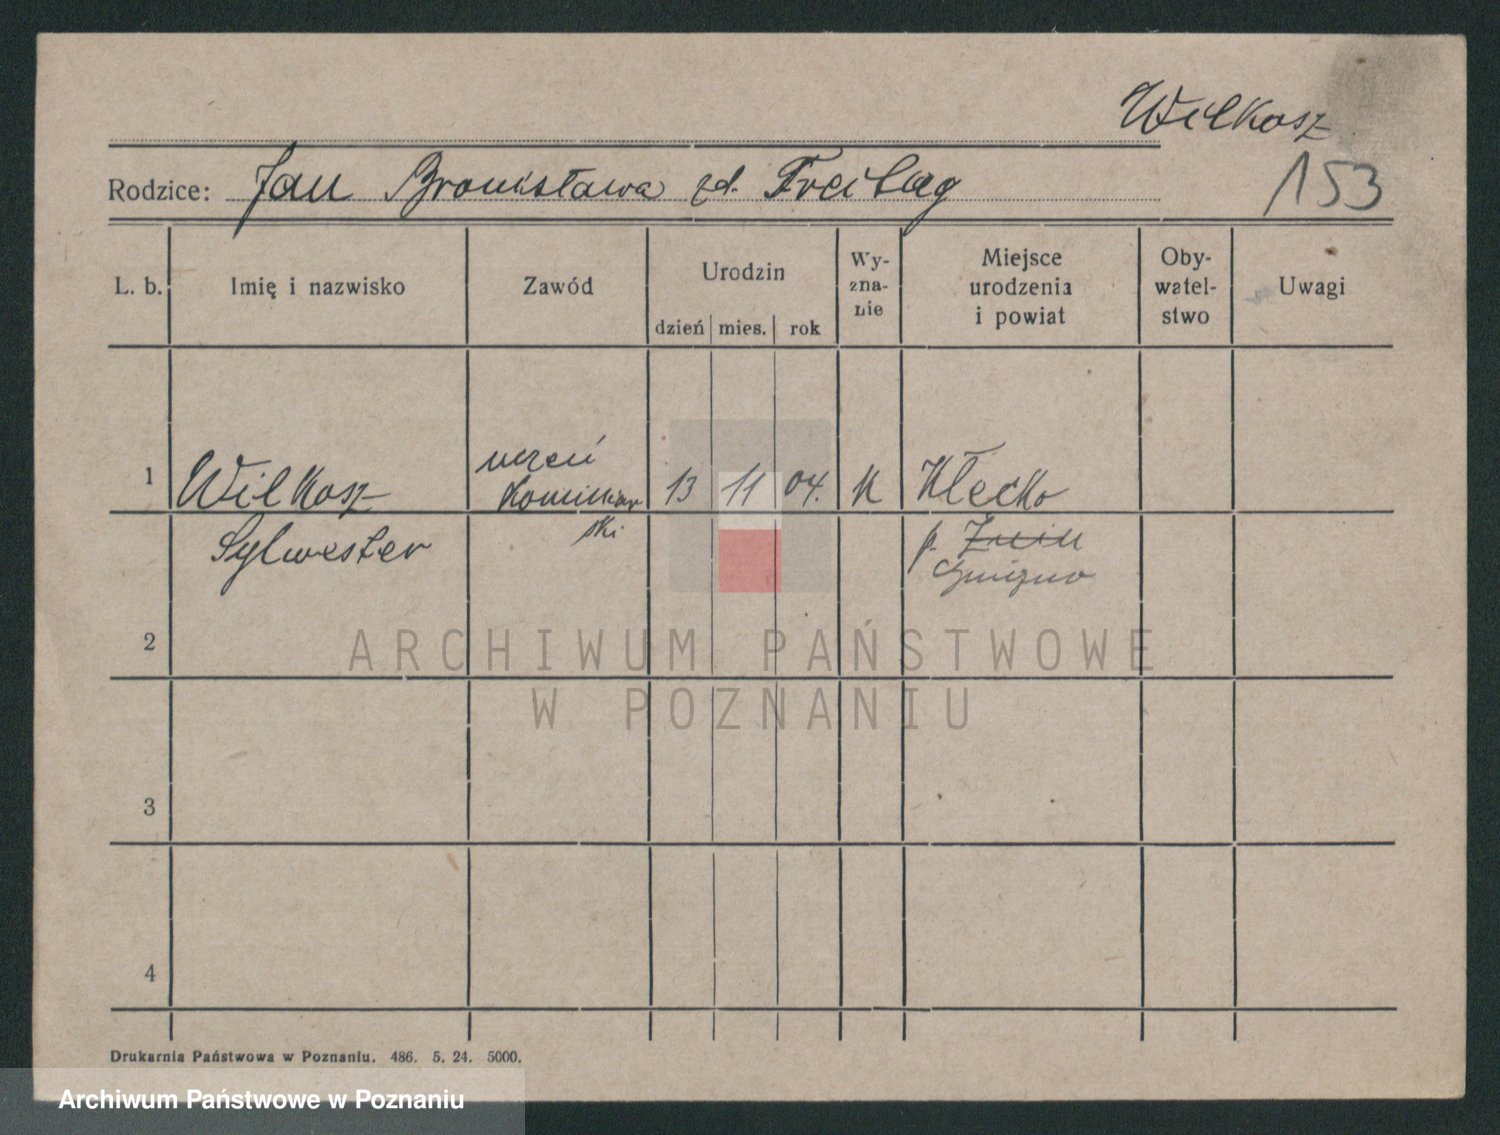 Wilkosz
Rodzice: Jan Bronisława zd. Freitag
153
L. b. Imię i nazwisko Zawód Urodzin dzień mies. rok Wy-zna-nie Miejsce urodzenia i powiat Oby-watel-stwo Uwagi
1 Wilkosz uczeń kominiar 13 11 04. K Kłecko
Sylwester ski p. Żnin
Gniezno
2
ARCHIWUM PAŃSTWOWE
W POZNANIU
3
4
Drukarnia Państwowa w Poznaniu. 486. 5. 24. 5000.
Archiwum Państwowe w Poznaniu